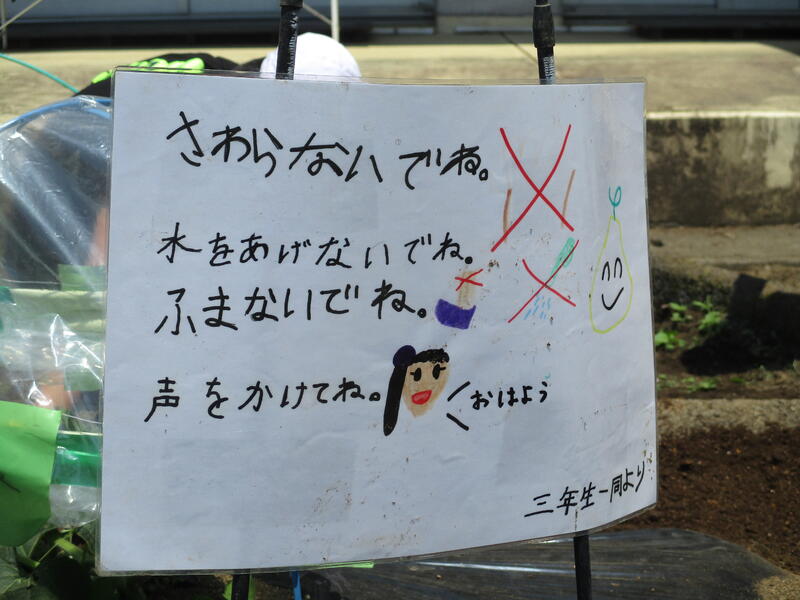 さわらないでね。
水をあげないでね。
ふまないでね。
声をかけてね。
おはよう
三年生一同より